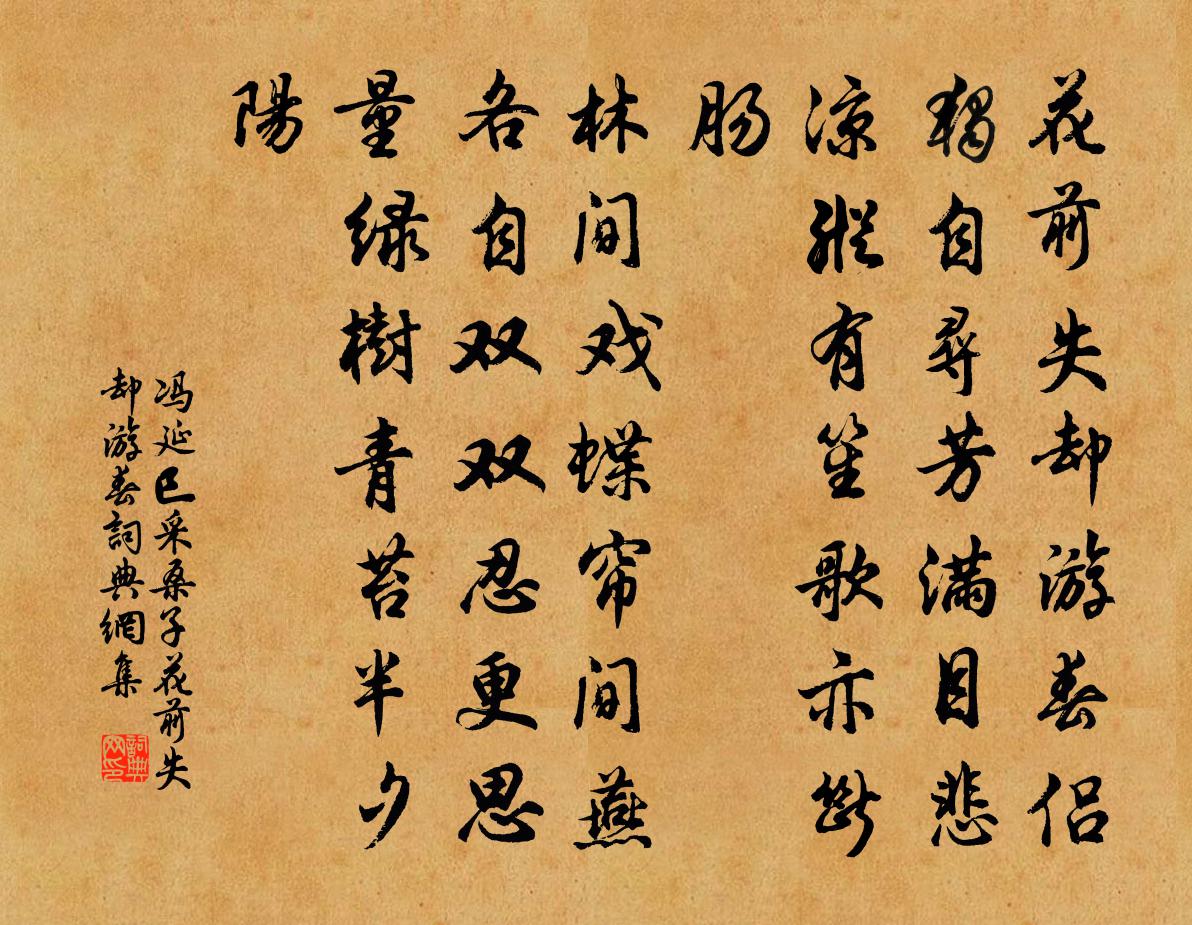 花前失却游春侣
獨自尋芳满目悲
凉縱有笙歌亦斷
肠
林间戏蝶帘间燕
各自双双忍更思
量绿樹青苔半夕
陽
冯延巳采桑子花前失
却游春詞典網集
詞典网印